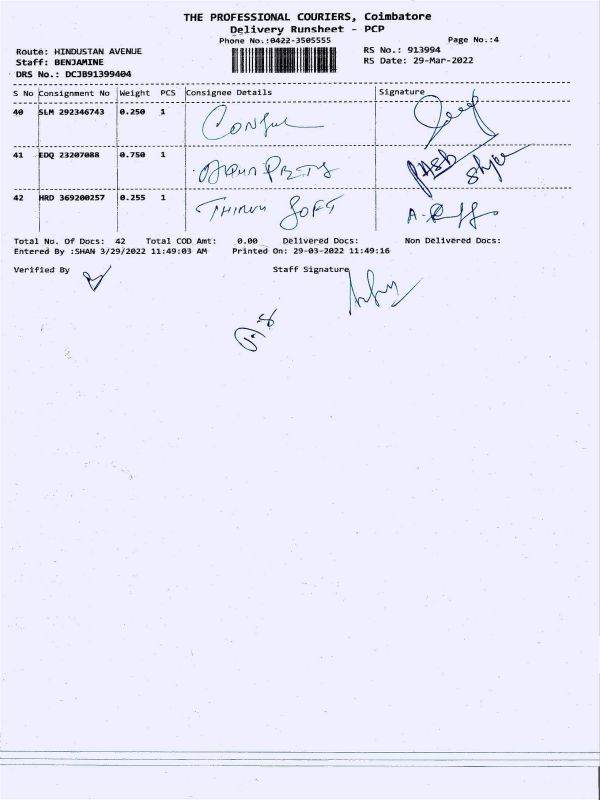 THE PROFESSIONAL COURIERS, Coimbatore
Delivery Runsheet - PCP
Phone No.:0422-3505555 Page No.:4
Route: HINDUSTAN AVENUE RS No.: 913994
Staff: BENJAMINE RS Date: 29-Mar-2022
DRS No.: DCJB91399404
S No Consignment No Weight PCS Consignee Details Signature
40 SLM 292346743 0.250 1
41 EDQ 23207088 0.750 1
42 HRD 369200257 0.255 1 THIRUV SOFT
Total No. Of Docs: 42 Total COD Amt: 0.00 Delivered Docs: Non Delivered Docs:
Entered By :SHAN 3/29/2022 11:49:03 AM Printed On: 29-03-2022 11:49:16
Verified By Staff Signature